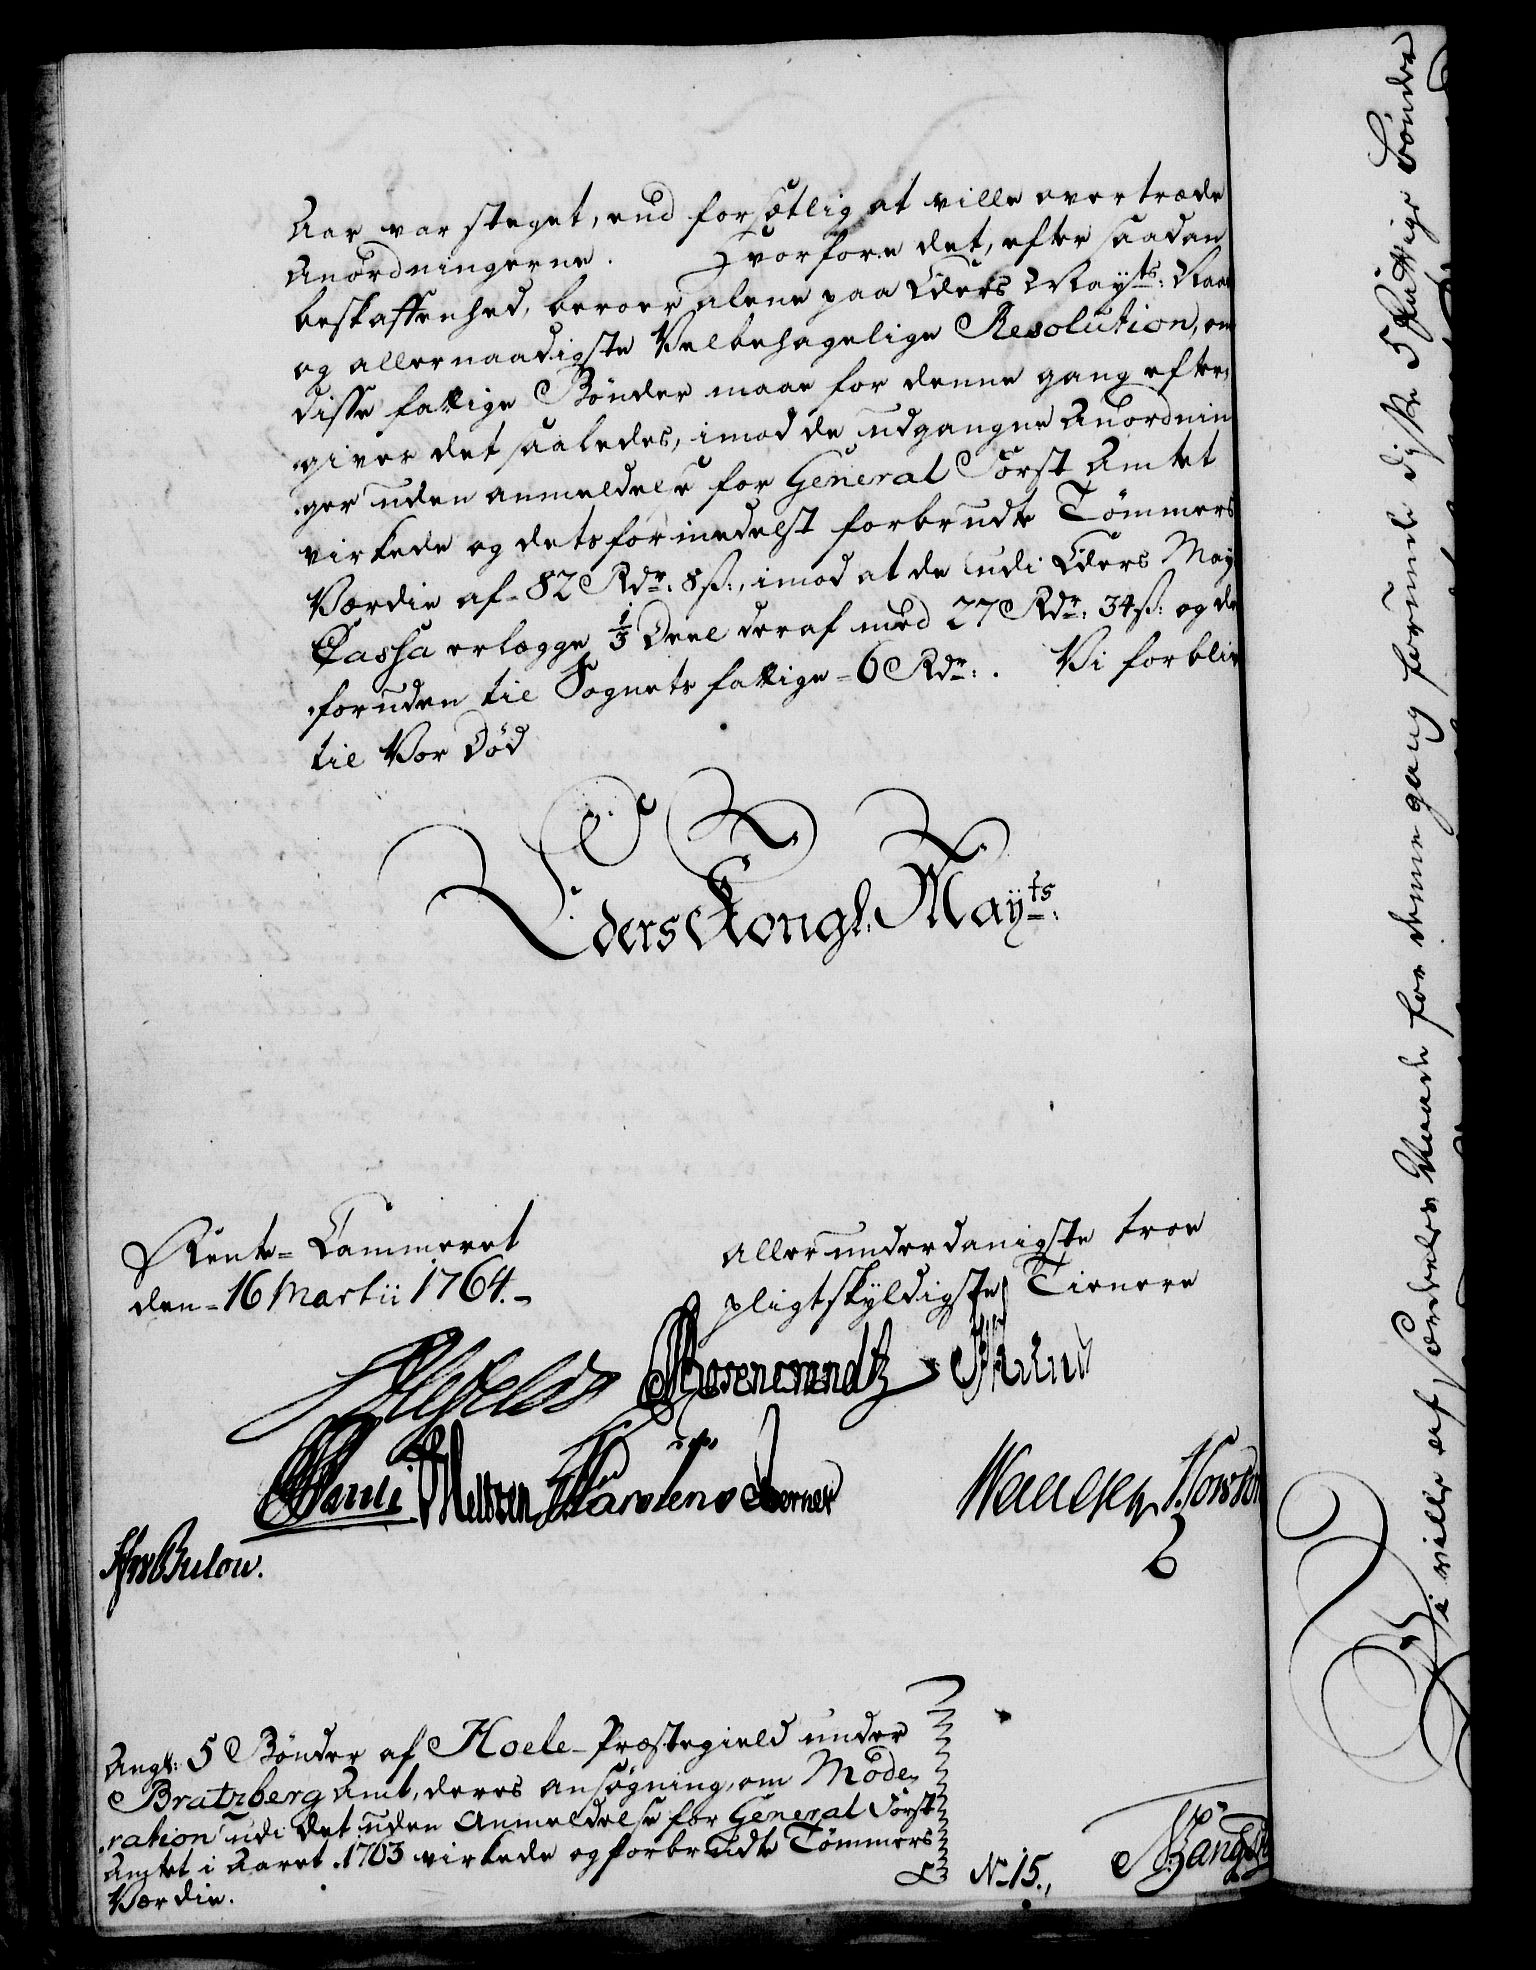 Aar var steget, end forsætlig at ville overtræde
Anordningerne. Hvorfore det, efter saadan
beskaffenhed, beroer alene paa Eders Mayts: Naade
og allernaadigste Velbehagelige Resolution, om
disse fattige Bønder maae for denne gang efter,
giver det saaledes, imod de udgangne Anordnin
ger uden anmeldelse for General Forst Amtet
virkede og detsformedelst forbrudte Tømmers
Værdie af 82 Rdr: 8 ß:, imod at de udi Eders May
Cassa erlægge 1/3 Deel deraf med 27 Rdr: 34 ß: og de
foruden til Sognets fattige 6 Rdr: . Vi forbliv
til Vor Død
Eders Kongl: Mayts:
Rente-Cammeret
den 16 Martii 1764.
Allerunderdanigste troe
pligtskyldigste Tienere
Ahlefeldt Rosencrandtz
Meltzen Karstens Berner
Bulow.
Angl: 5 Bønder af Hoele Præstegield under
Bratzberg Amt, deres ansøgning, om Mode,
ration udi det uden Anmeldelse for General Forst
Amtet i Aaret 1763 virkede og forbrudte Tømmers
Værdie.
No 15.,
Vi ville af særdeles Naade for denne gang forunde disse 5 fattige Bønder